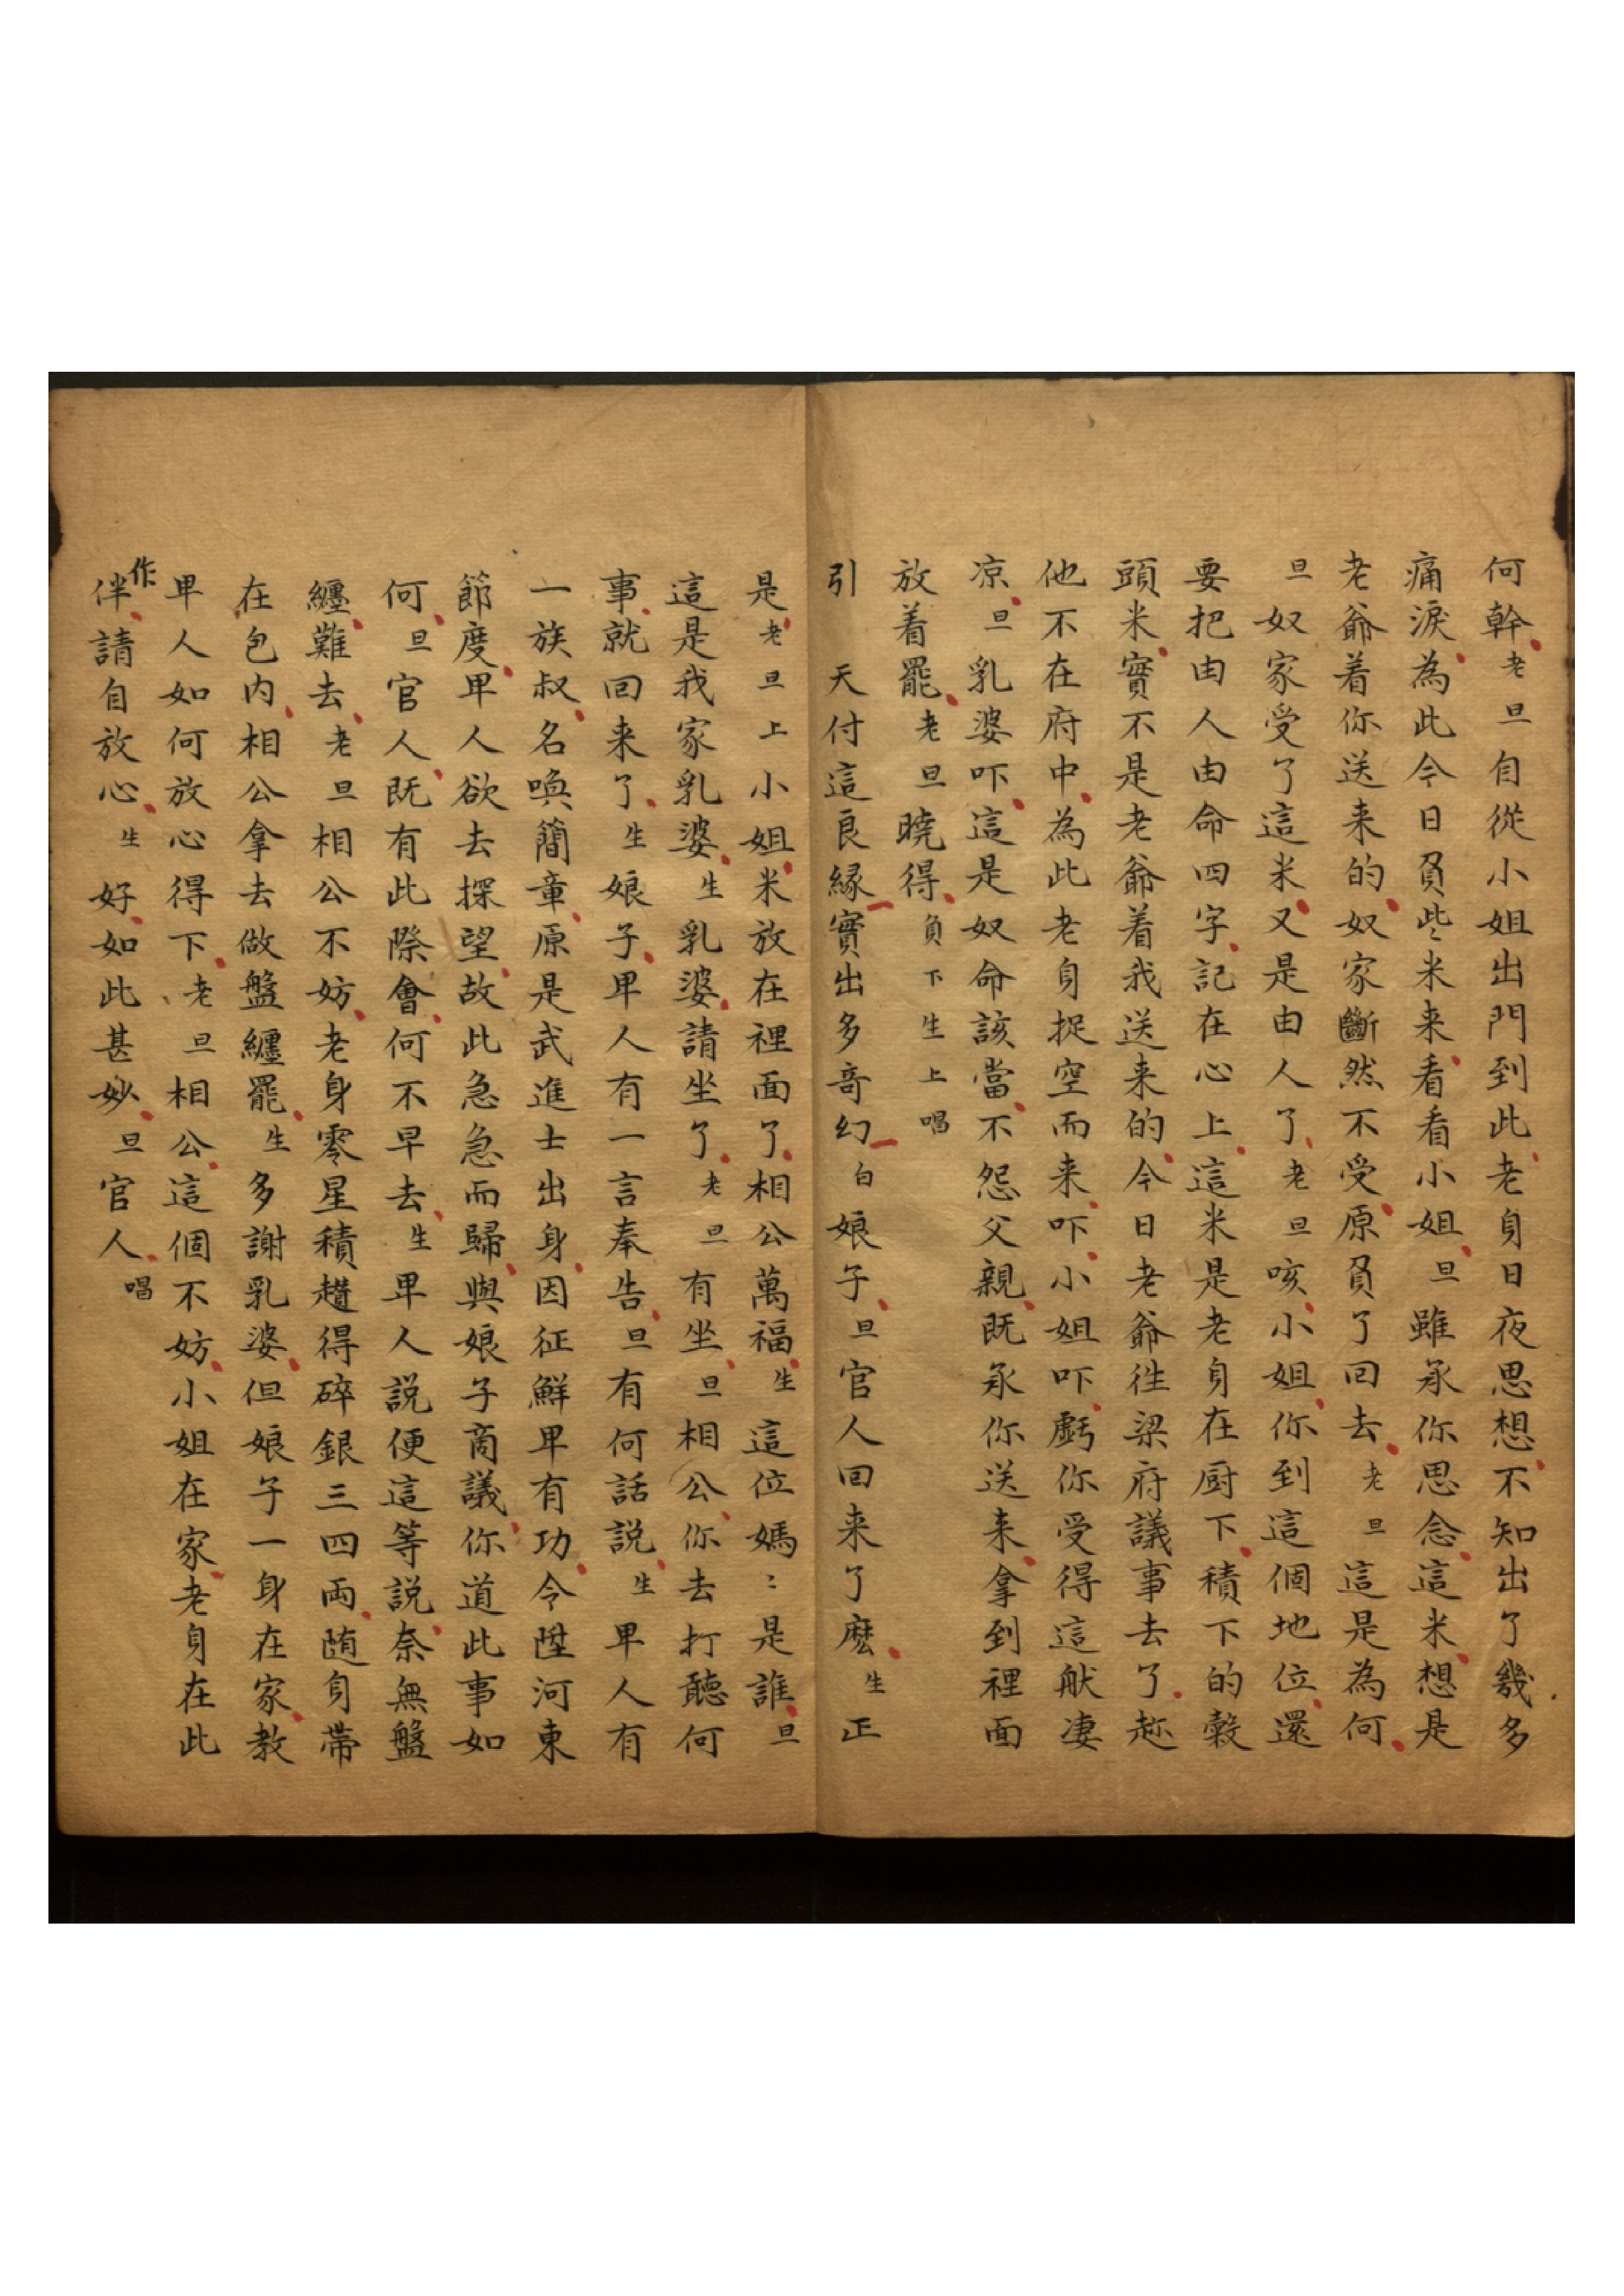 何幹老旦自從小姐出門到此老身日夜思想不知出了幾多
痛淚為此今日負些米来看看小姐旦雖承你思念這米想是
老爺着你送来的奴家斷然不受原負了回去老旦這是為何
旦奴家受了這米又是由人了老旦咳小姐你到這個地位還
要把由人由命四字記在心上這米是老身在厨下積下的穀
頭米實不是老爺着我送来的今日老爺徃梁府議事去了趂
他不在府中為此老身捉空而来吓小姐吓虧你受得這般凄
凉旦乳婆吓這是奴命該當不怨父親既承你送来拿到裡面
放着罷老旦曉得負下生上唱
引 天付這良縁實出多竒幻白娘子旦官人回来了麽生正
是老旦上小姐米放在裡面了相公萬福生這位媽〻是誰旦
這是我家乳婆生乳婆請坐了老旦有坐旦相公你去打聽何
事就回来了生娘子卑人有一言奉告旦有何話説生卑人有
一族叔名喚簡章原是武進士出身因征鮮卑有功今陞河東
節度卑人欲去探望故此急急而歸與娘子商議你道此事如
何旦官人既有此際會何不早去生卑人説便這等説奈無盤
纏難去老旦相公不妨老身零星積趲得碎銀三四両随身帶
在包内相公拿去做盤纏罷生多謝乳婆但娘子一身在家教
卑人如何放心得下老旦相公這個不妨小姐在家老身在此
作伴請自放心生好如此甚妙旦官人唱